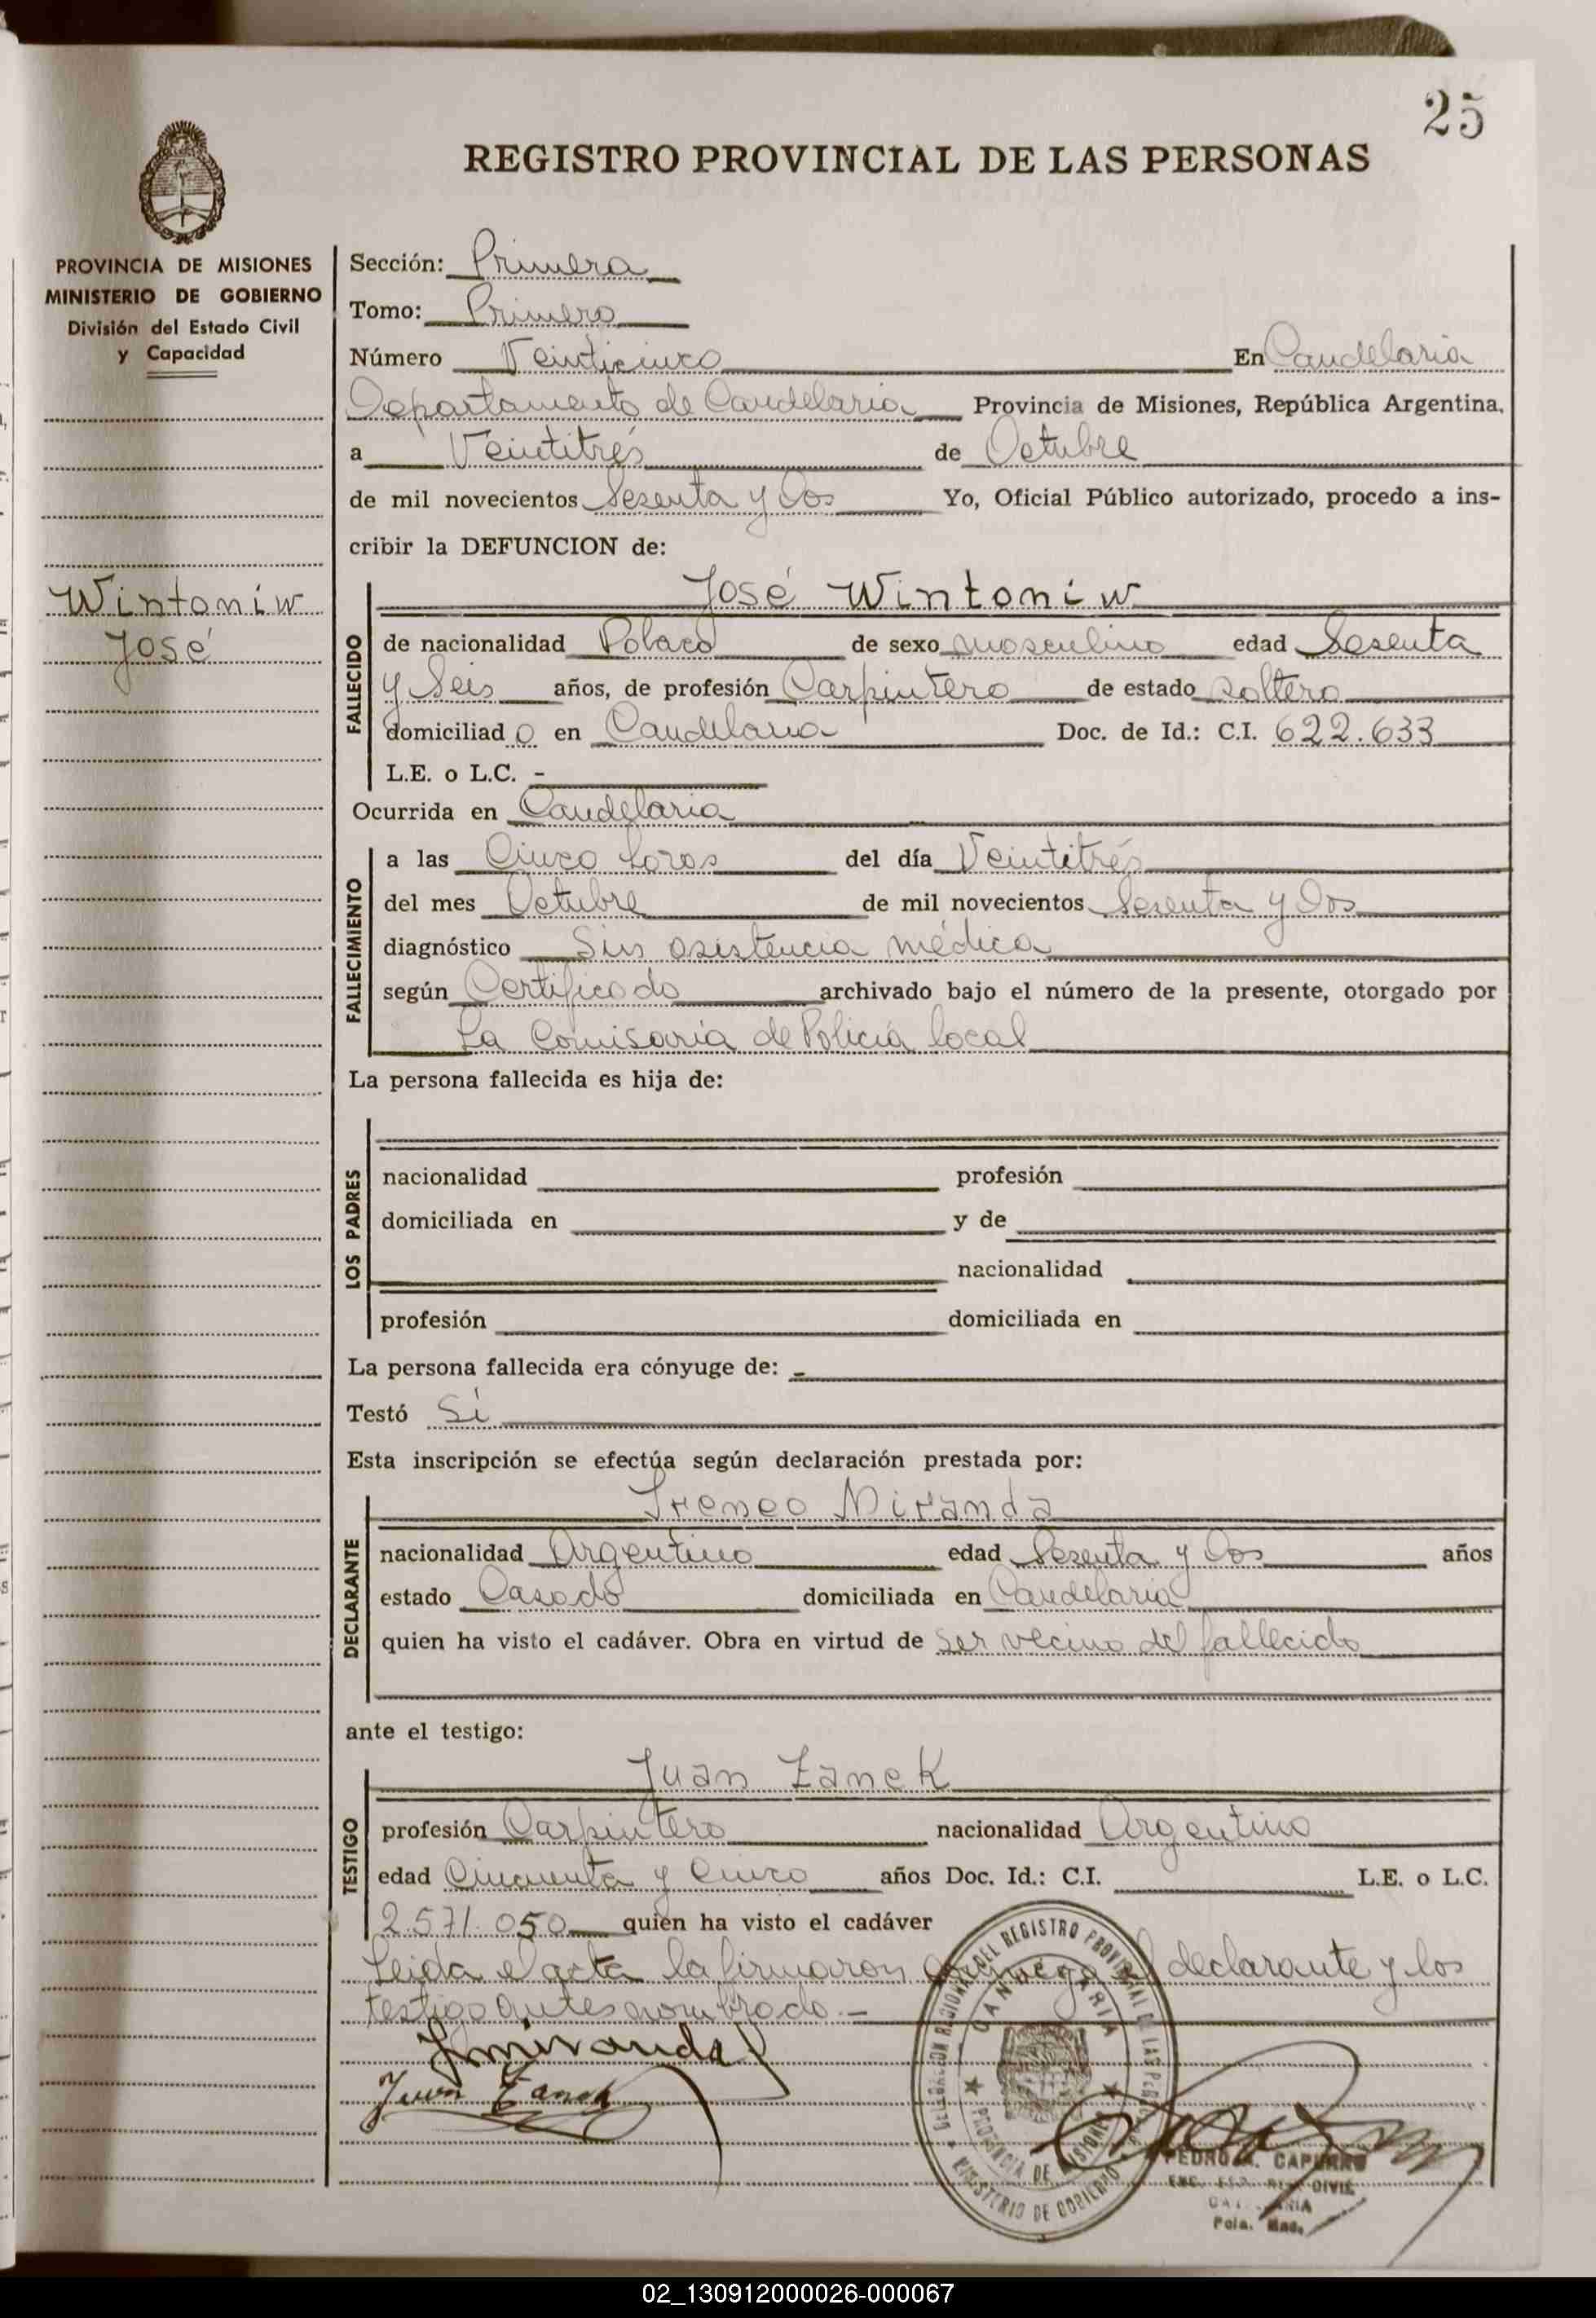 25
REGISTRO PROVINCIAL DE LAS PERSONAS
PROVINCIA DE MISIONES
MINISTERIO DE GOBIERNO
División del Estado Civil
y Capacidad
Sección: Primera
Tomo: Primero
Número Veinticinco En Candelaria
Departamento de Candelaria Provincia de Misiones, República Argentina,
a Veintitrés de Octubre
de mil novecientos Sesenta y Dos Yo, Oficial Público autorizado, procedo a ins-
cribir la DEFUNCION de:
Wintoniw
José
FALLECIDO
José Wintoniw
de nacionalidad Polaco de sexo masculino edad Sesenta
y Seis años, de profesión Carpintero de estado soltero
domiciliad o en Candelaria Doc. de Id.: C.I. 622.633
L.E. o L.C. -
Ocurrida en Candelaria
FALLECIMIENTO
a las Cinco horas del día Veintitrés
del mes Octubre de mil novecientos Sesenta y Dos
diagnóstico Sin asistencia médica
según Certificado archivado bajo el número de la presente, otorgado por
La Comisaría de Policía local
La persona fallecida es hija de:
LOS PADRES
nacionalidad profesión
domiciliada en y de
nacionalidad
profesión domiciliada en
La persona fallecida era cónyuge de: -
Testó Sí
Esta inscripción se efectúa según declaración prestada por:
DECLARANTE
Ireneo Miranda
nacionalidad Argentino edad Sesenta y Dos años
estado Casado domiciliada en Candelaria
quien ha visto el cadáver. Obra en virtud de ser vecino del fallecido
ante el testigo:
TESTIGO
Juan Zanek
profesión Carpintero nacionalidad Argentino
edad Cincuenta y Cinco años Doc. Id.: C.I. L.E. o L.C.
2.571.050 quien ha visto el cadáver
Leida el acta la firmaron conmigo el declarante y los
testigo antes nombrado. -
Jmiranda
Juan Zanek
DELEGACION REGIONAL DEL REGISTRO PROVINCIAL DE LAS PERSONAS
CANDELARIA
PROVINCIA DE MISIONES
MINISTERIO DE GOBIERNO
PEDRO A. CAPURRO
02_130912000026-000067